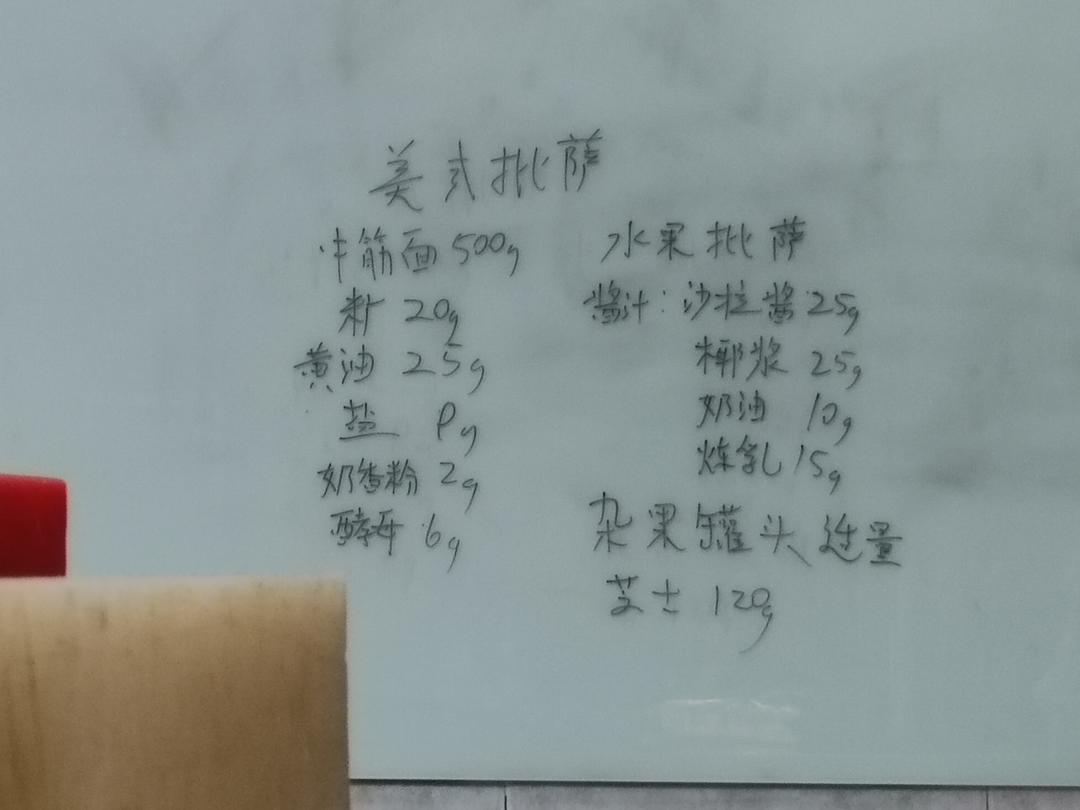 美式批萨
中筋面 500g
20g
黄油 25g
盐 8g
奶香粉 2g
酵母 6g
水果批萨
酱汁：沙拉酱 25g
椰浆 25g
奶油 10g
炼乳 15g
杂果罐头适量
芝士 120g